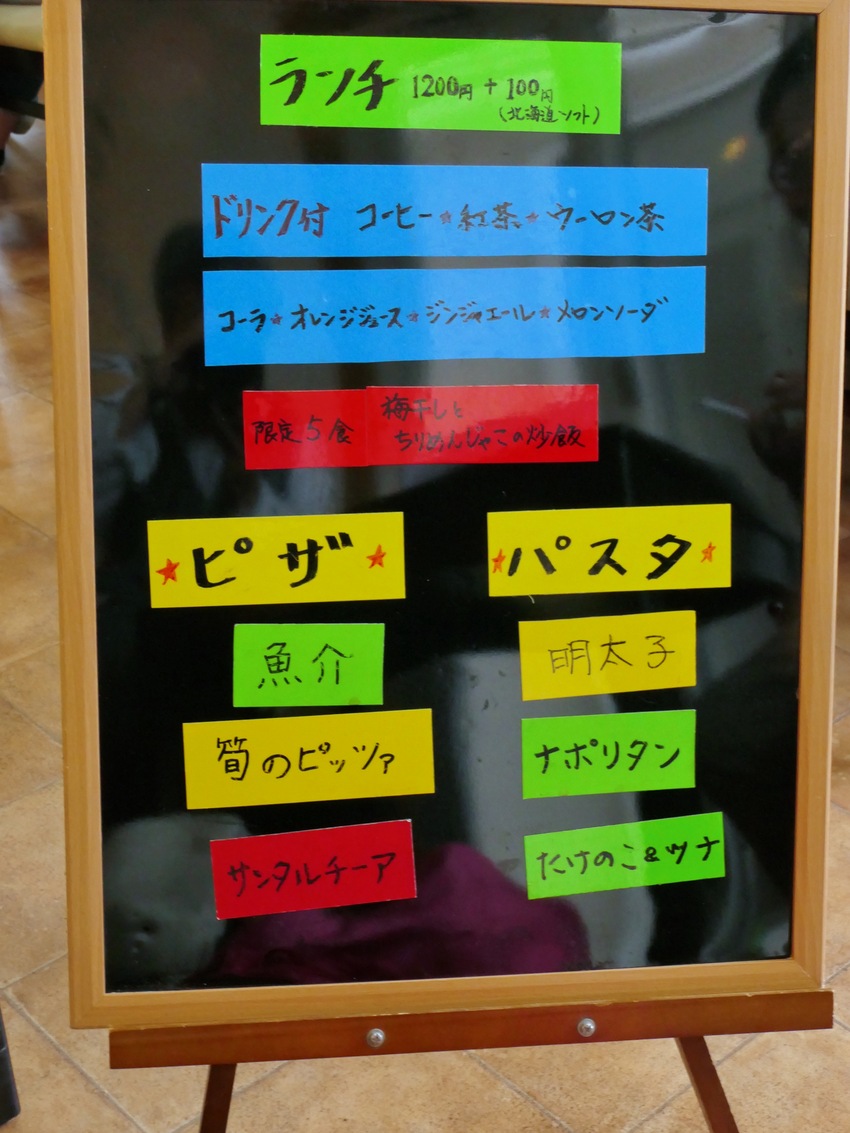 ランチ 1200円 + 100円
(北海道ソフト)
ドリンク付 コーヒー★紅茶★ウーロン茶
コーラ★オレンジジュース★ジンジャエール★メロンソーダ
限定5食 梅干しと
ちりめんじゃこの炒飯
★ピザ★
★パスタ★
魚介
明太子
筍のピッツァ
ナポリタン
サンタルチーア
たけのこ&ツナ